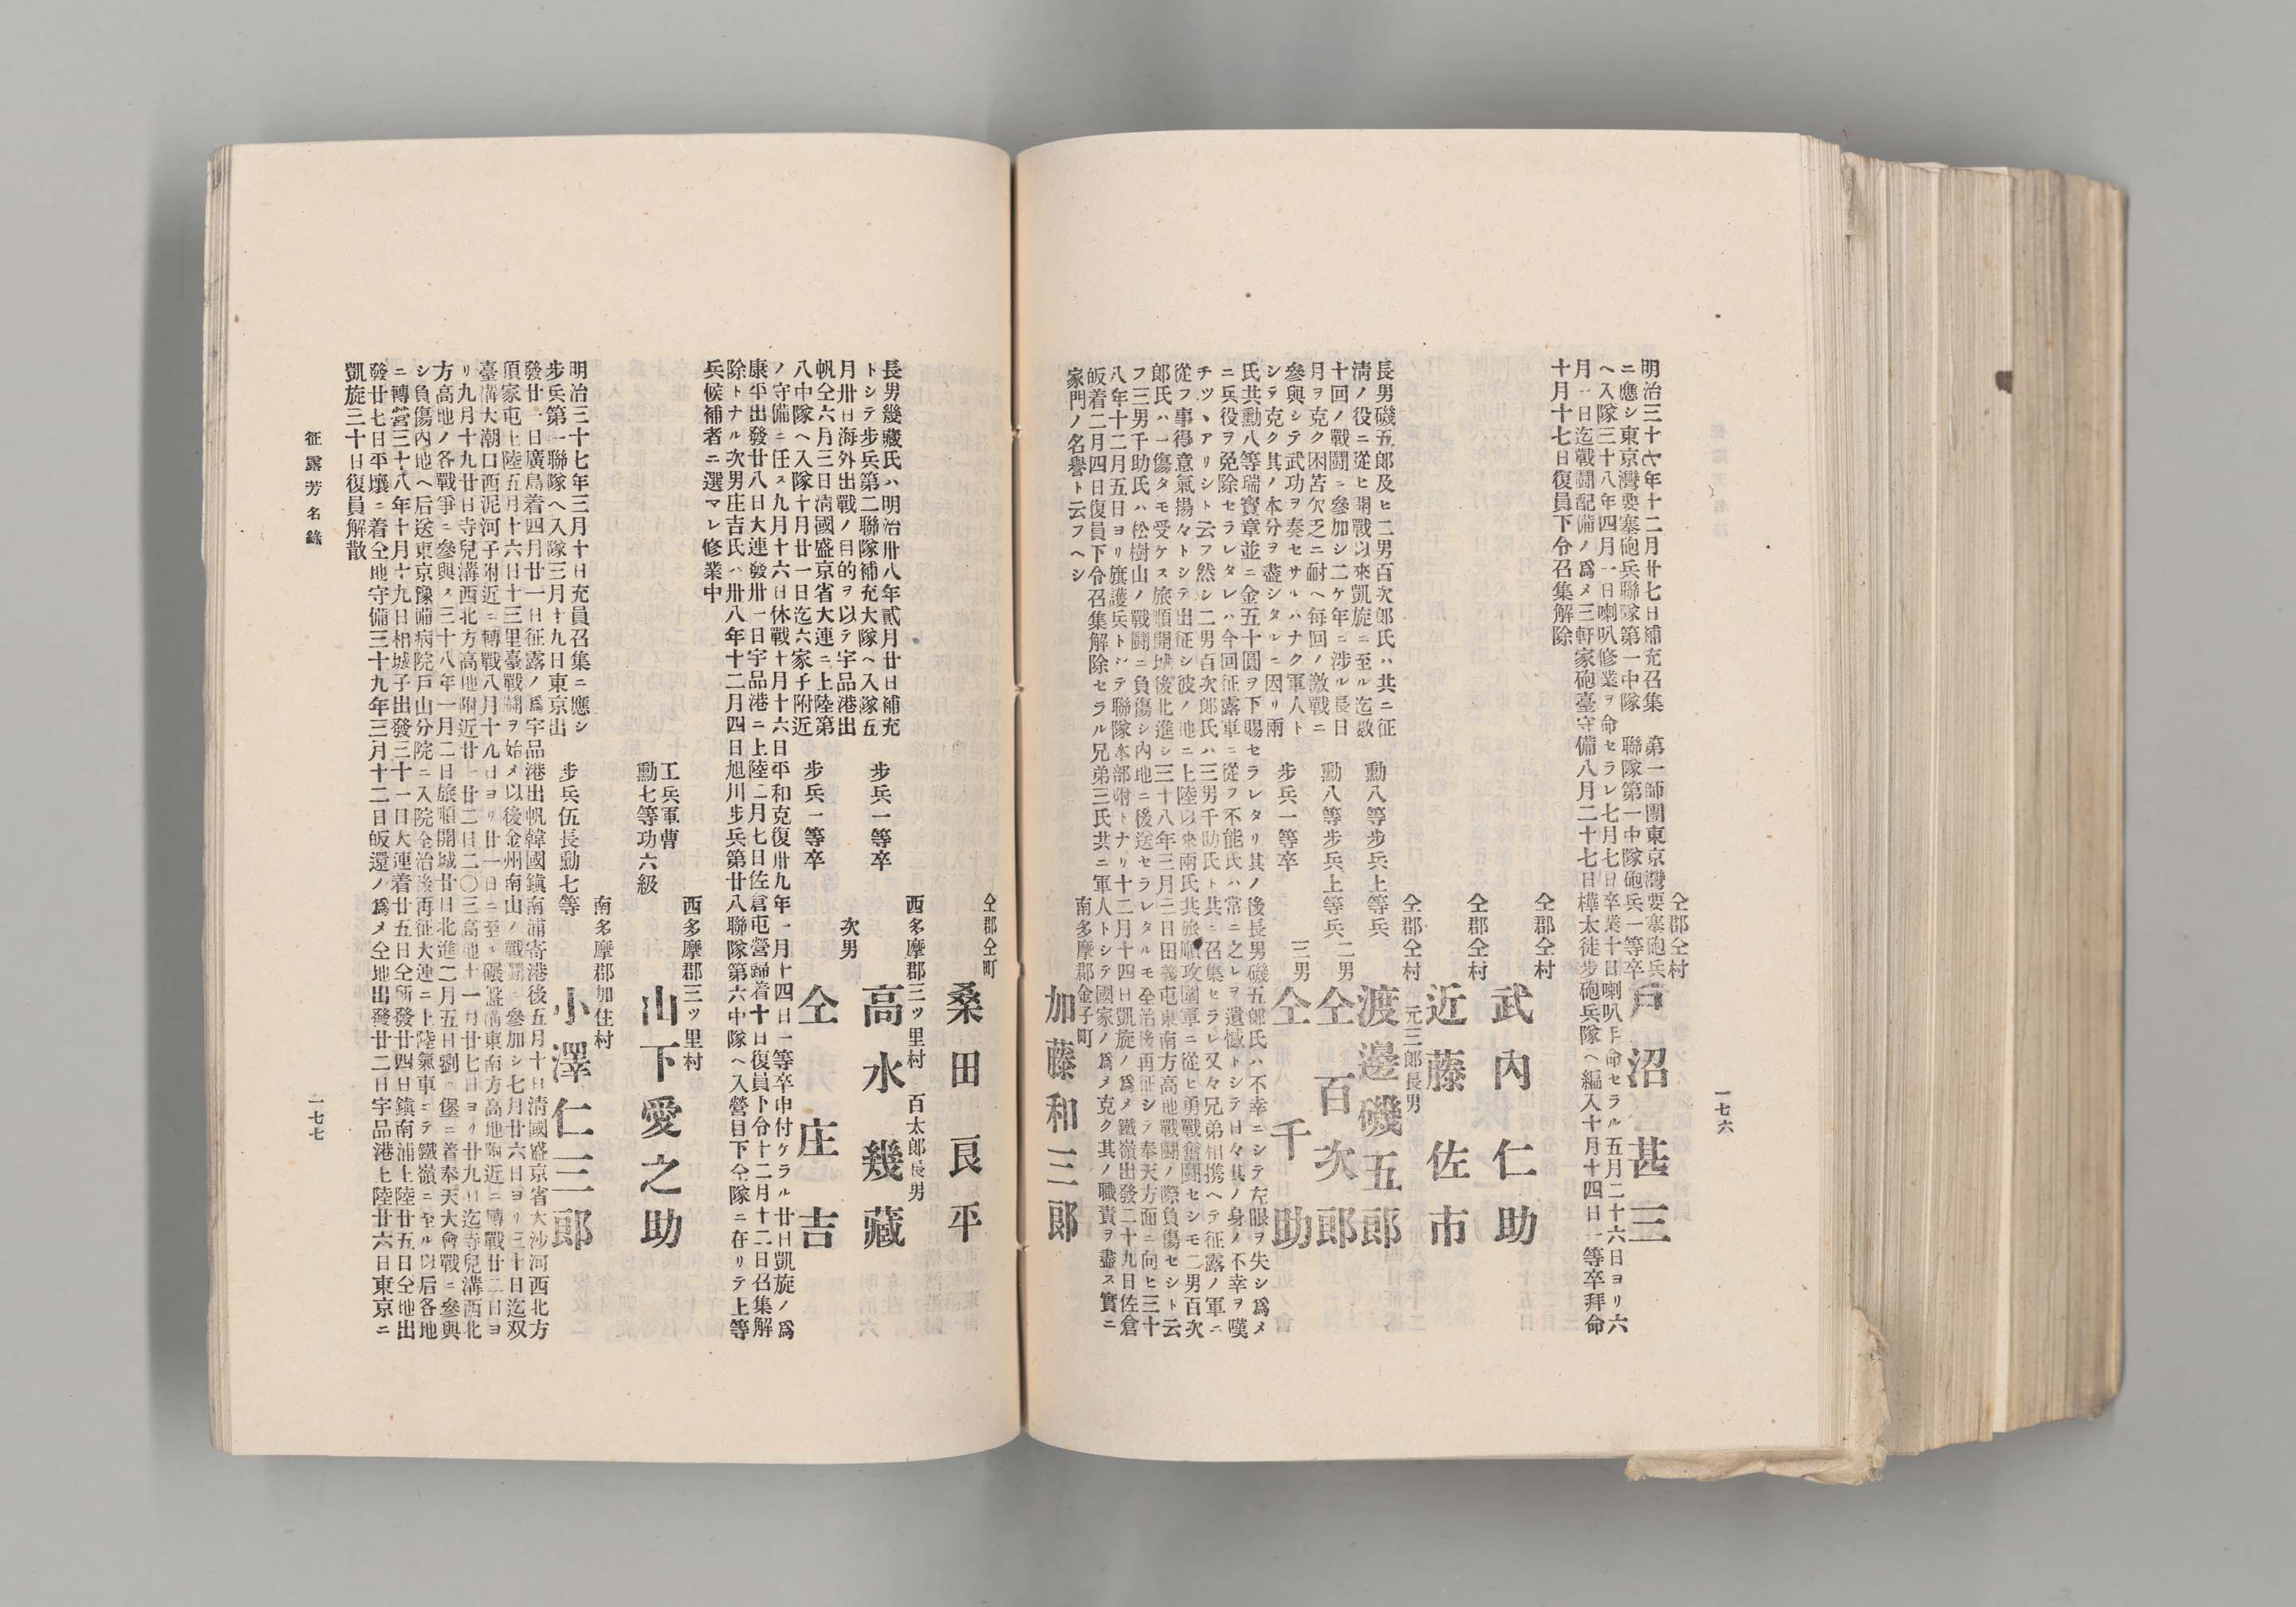 一七六
仝郡仝村
第一師團東京灣要塞砲兵
聯隊第一中隊砲兵一等卒
戸沼甚三
明治三十七年十二月廿七日補充召集
ニ應シ東京灣要塞砲兵聯隊第一中隊
ヘ入隊三十八年四月一日喇叭修業ヲ命セラレ七月七日卒業十日喇叭手命セラル五月二十六日ヨリ六
月一日迄戰鬪配備ノ爲メ三軒家砲臺守備八月二十七日樺太徒歩砲兵隊ヘ編入十月十四日一等卒拜命
十月十七日復員下令召集解除
仝郡仝村
武內仁助
仝郡仝村
近藤佐市
仝郡仝村 元三郎長男
勳八等歩兵上等兵 渡邊磯五郎
二男
勳八等歩兵上等兵 仝百次郎
三男
歩兵一等卒 仝千助
長男磯五郎及ヒ二男百次郎氏ハ共ニ征
淸ノ役ニ從ヒ開戰以來凱旋ニ至ル迄數
十回ノ戰鬪ニ參加シ二ケ年ニ涉ル長日
月ヲ克ク困苦欠乏ニ耐ヘ每回ノ激戰ニ
參與シテ武功ヲ奏セサルハナク軍人ト
シテ克ク其ノ本分ヲ盡シタルニ因リ兩
氏共勳八等瑞寶章並ニ金五十圓ヲ下賜セラレタリ其ノ後長男磯五郎氏ハ不幸ニシテ左眼ヲ失シ爲メ
ニ兵役ヲ免除セラレタレハ今回征露軍ニ從フ不能氏ハ常ニ之レヲ遺憾トシテ日々其ノ身ノ不幸ヲ嘆
チツヽアリシト云フ然シ二男百次郎氏ハ三男千助氏ト共ニ召集セラレ又々兄弟相携ヘテ征露ノ軍ニ
從フ事得意氣揚々トシテ出征シ彼ノ地ニ上陸以來兩氏共旅順攻圍軍ニ從ヒ勇戰奮鬪セシモ二男百次
郎氏ハ一傷タモ受ケス旅順開城後北進シ三十八年三月三日田義屯東南方高地戰鬪ノ際負傷セシト云
フ三男千助氏ハ松樹山ノ戰鬪ニ負傷シ內地ニ後送セラレタルモ全治後再征シテ奉天方面ニ向ヒ三十
八年十二月五日ヨリ旗護兵トシテ聯隊本部附トナリ十二月十四日凱旋ノ爲メ鐵嶺出發二十九日佐倉
皈着二月四日復員下令召集解除セラル兄弟三氏共ニ軍人トシテ國家ノ爲メ克ク其ノ職責ヲ盡ス實ニ
家門ノ名譽ト云フヘシ
南多摩郡金子町
加藤和三郎
仝郡仝町
桑田良平
西多摩郡三ツ里村 百太郎長男
歩兵一等卒 高水幾藏
次男
歩兵一等卒 仝庄吉
長男幾藏氏ハ明治卅八年貳月廿日補充
トシテ歩兵第二聯隊補充大隊ヘ入隊五
月卅日海外出戰ノ目的ヲ以テ宇品港出
帆仝六月三日淸國盛京省大連ニ上陸第
八中隊ヘ入隊十月廿一日迄六家子附近
ノ守備ニ任ス九月十六日休戰十月十六日平和克復卅九年一月十四日一等卒申付ケラル廿日凱旋ノ爲
康平出發廿八日大連發卅一日宇品港ニ上陸二月七日佐倉屯營歸着十日復員下令十二月十二日召集解
除トナル次男庄吉氏ハ卅八年十二月四日旭川歩兵第廿八聯隊第六中隊ヘ入營目下仝隊ニ在リテ上等
兵候補者ニ選マレ修業中
西多摩郡三ツ里村
工兵軍曹
勳七等功六級
山下愛之助
南多摩郡加住村
歩兵伍長勳七等 小澤仁三郎
明治三十七年三月十日充員召集ニ應シ
歩兵第一聯隊ヘ入隊三月十九日東京出
發廿一日廣島着四月廿一日征露ノ爲宇品港出帆韓國鎭南浦寄港後五月十日淸國盛京省大沙河西北方
項家屯上陸五月十六日十三里臺戰鬪ヲ始メ以後金州南山ノ戰鬪ニ參加シ七月廿六日ヨリ三十日迄双
臺溝大潮口西泥河子附近ニ轉戰八月十九日ヨリ廿一日ニ至ル碾盤溝東南方高地附近ニ轉戰廿二日ヨ
リ九月十九廿日寺兒溝西北方高地附近廿一廿二日二〇三高地十一月廿七日ヨリ廿九日迄寺兒溝西北
方高地ノ各戰爭ニ參與ス三十八年一月二日旅順開城廿日北進二月五日劉二堡ニ着奉天大會戰ニ參與
シ負傷內地ヘ后送東京豫備病院戸山分院ニ入院全治後再征大連ニ上陸氣車ニテ鐵嶺ニ至ル以后各地
ニ轉營三十八年十月十九日柏城子出發三十一日大連着廿五日仝所發廿四日鎭南浦上陸廿五日仝地出
發廿七日平壤ニ着仝地守備三十九年三月十二日皈還ノ爲メ仝地出發廿二日宇品港上陸廿六日東京ニ
凱旋三十日復員解散
征露芳名錄
一七七